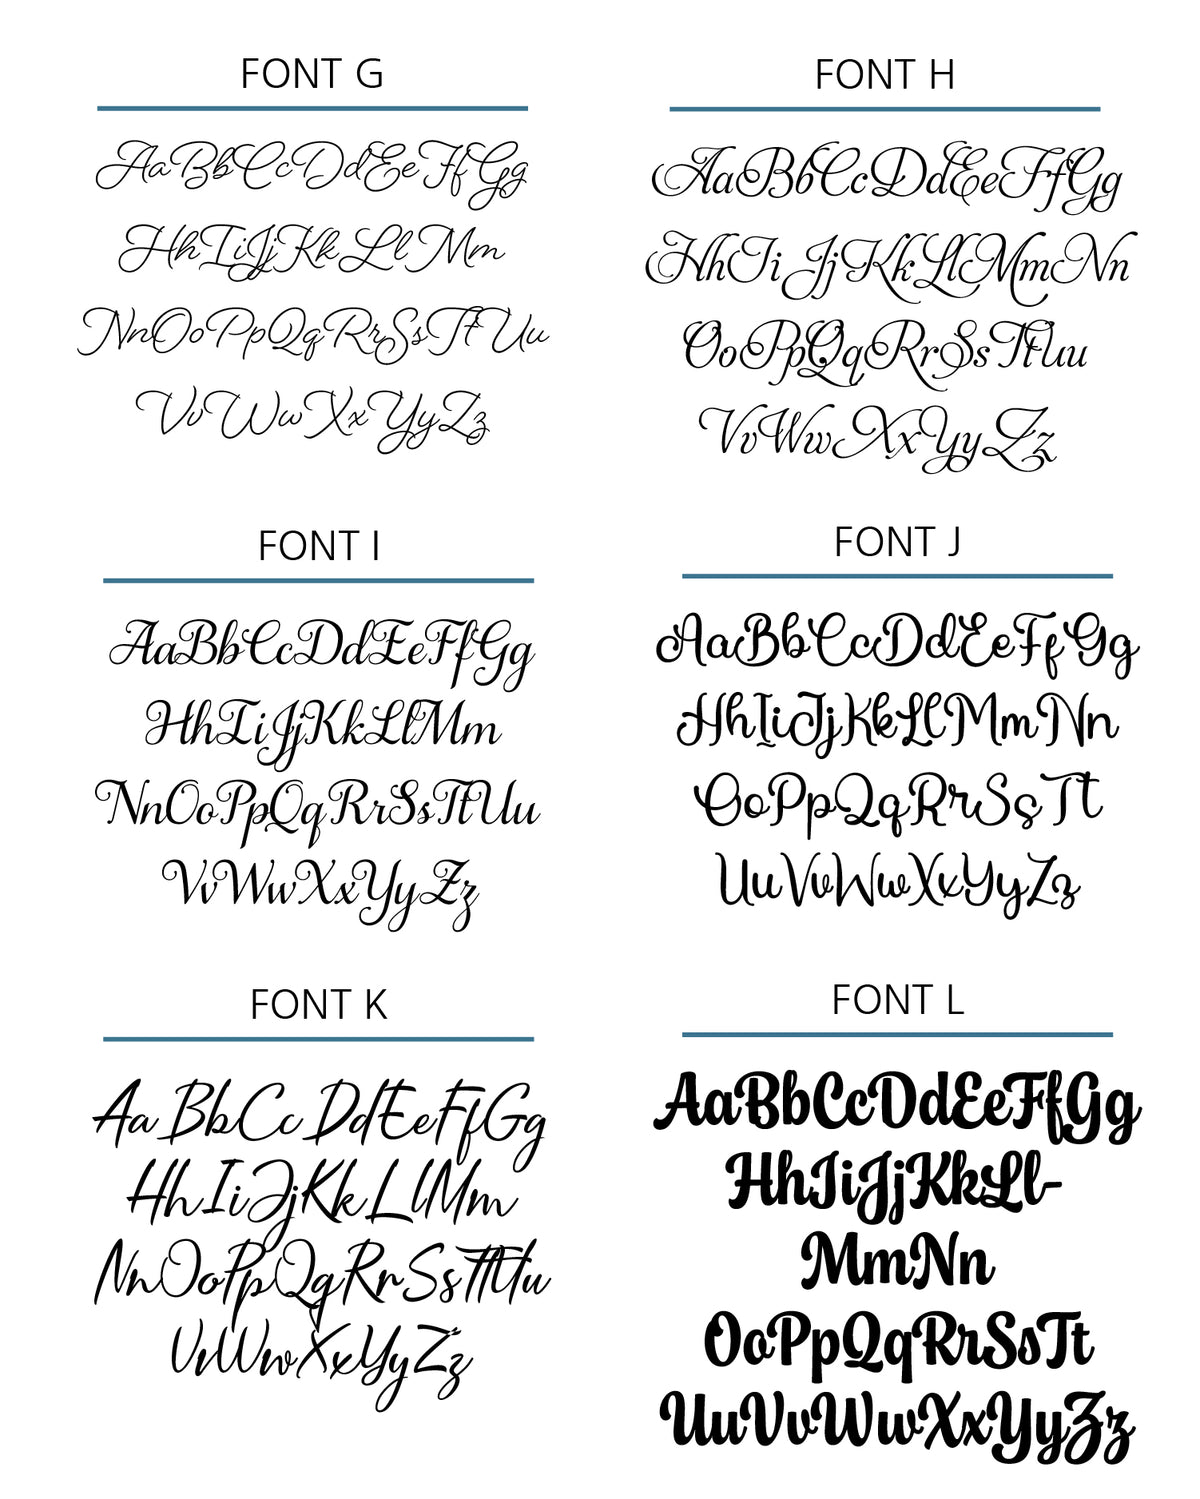 FONT G
AaBbCcDdEeFfGg
HhIiJjKkLlMm
NnOoPpQqRrSsTtUu
VvWwXxYyZz
FONT H
AaBbCcDdEeFfGg
HhIiJjKkLlMmNn
OoPpQqRrSsTtUu
VvWwXxYyZz
FONT I
AaBbCcDdEeFfGg
HhIiJjKkLlMm
NnOoPpQqRrSsTtUu
VvWwXxYyZz
FONT J
AaBbCcDdEeFfGg
HhIiJjKkLlMmNn
OoPpQqRrSsTt
UuVvWwXxYyZz
FONT K
AaBbCcDdEeFfGg
HhIiJjKkLlMm
NnOoPpQqRrSsTtUu
VvWwXxYyZz
FONT L
AaBbCcDdEeFfGg
HhIiJjKkLl-
MmNn
OoPpQqRrSsTt
UuVvWwXxYyZz